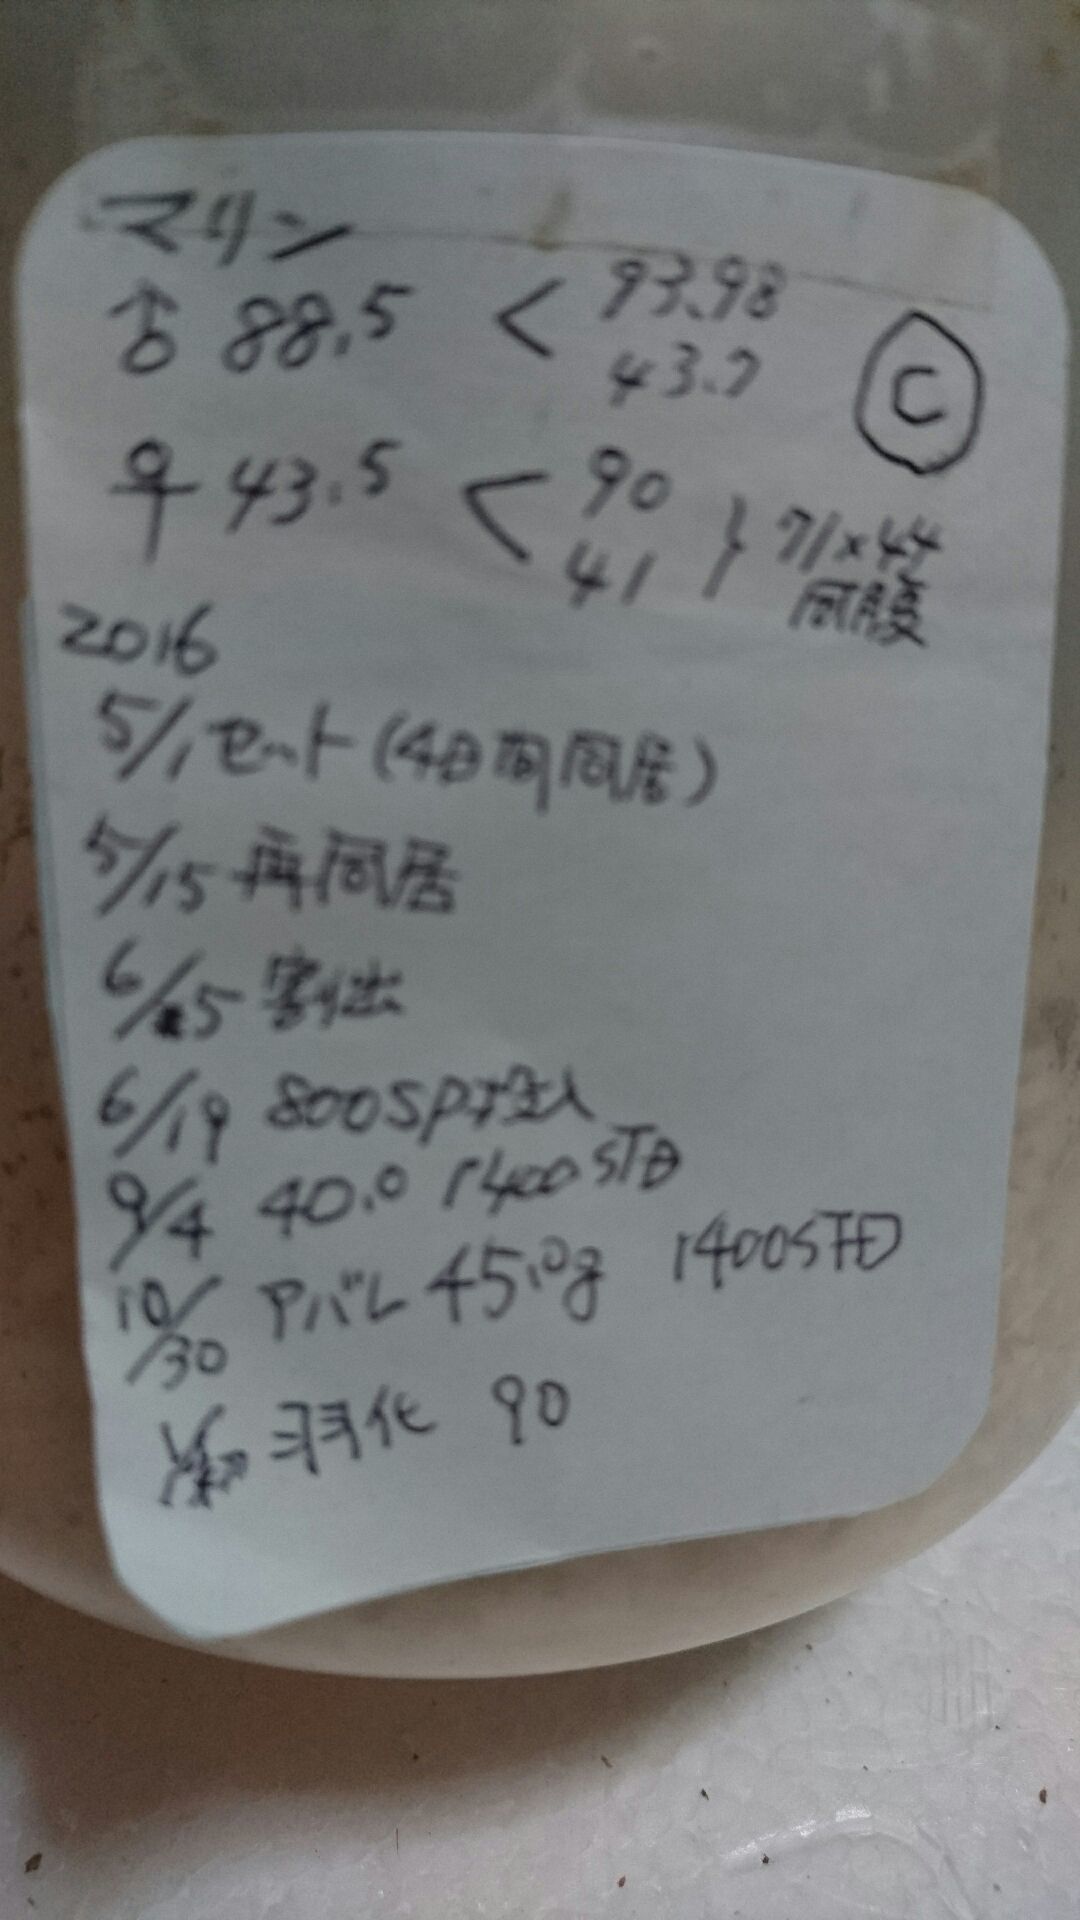 マリン
♂ 88.5 < 93.98
43.7
C
♀ 43.5 < 90
41 } 71×44
同腹
2016
5/1 セット(4日間同居)
5/15 再同居
6/5 割出
6/19 800SP投入
9/4 40.0 1400STB
10/30 アバレ 45.0g 1400STB
羽化 90